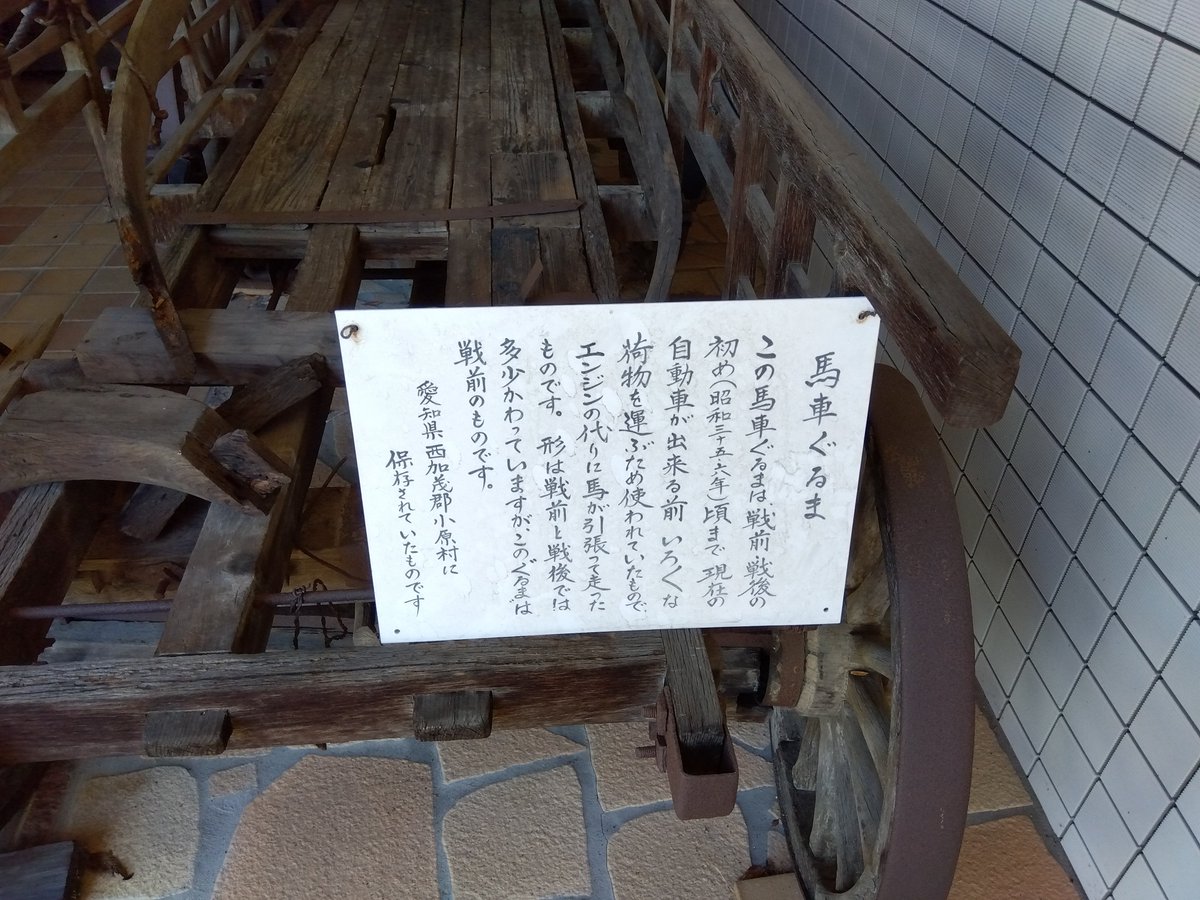 馬車ぐるま
この馬車ぐるまは、戦前、戦後の
初め(昭和三十五・六年)頃まで現在の
自動車が出来る前いろくな
荷物を運ぶため使われていたもので、
エンジンの代りに馬が引張って走った
ものです。形は戦前と戦後では
多少かわっていますが、このぐるまは
戦前のものです。
愛知県西加茂郡小原村に
保存されていたものです